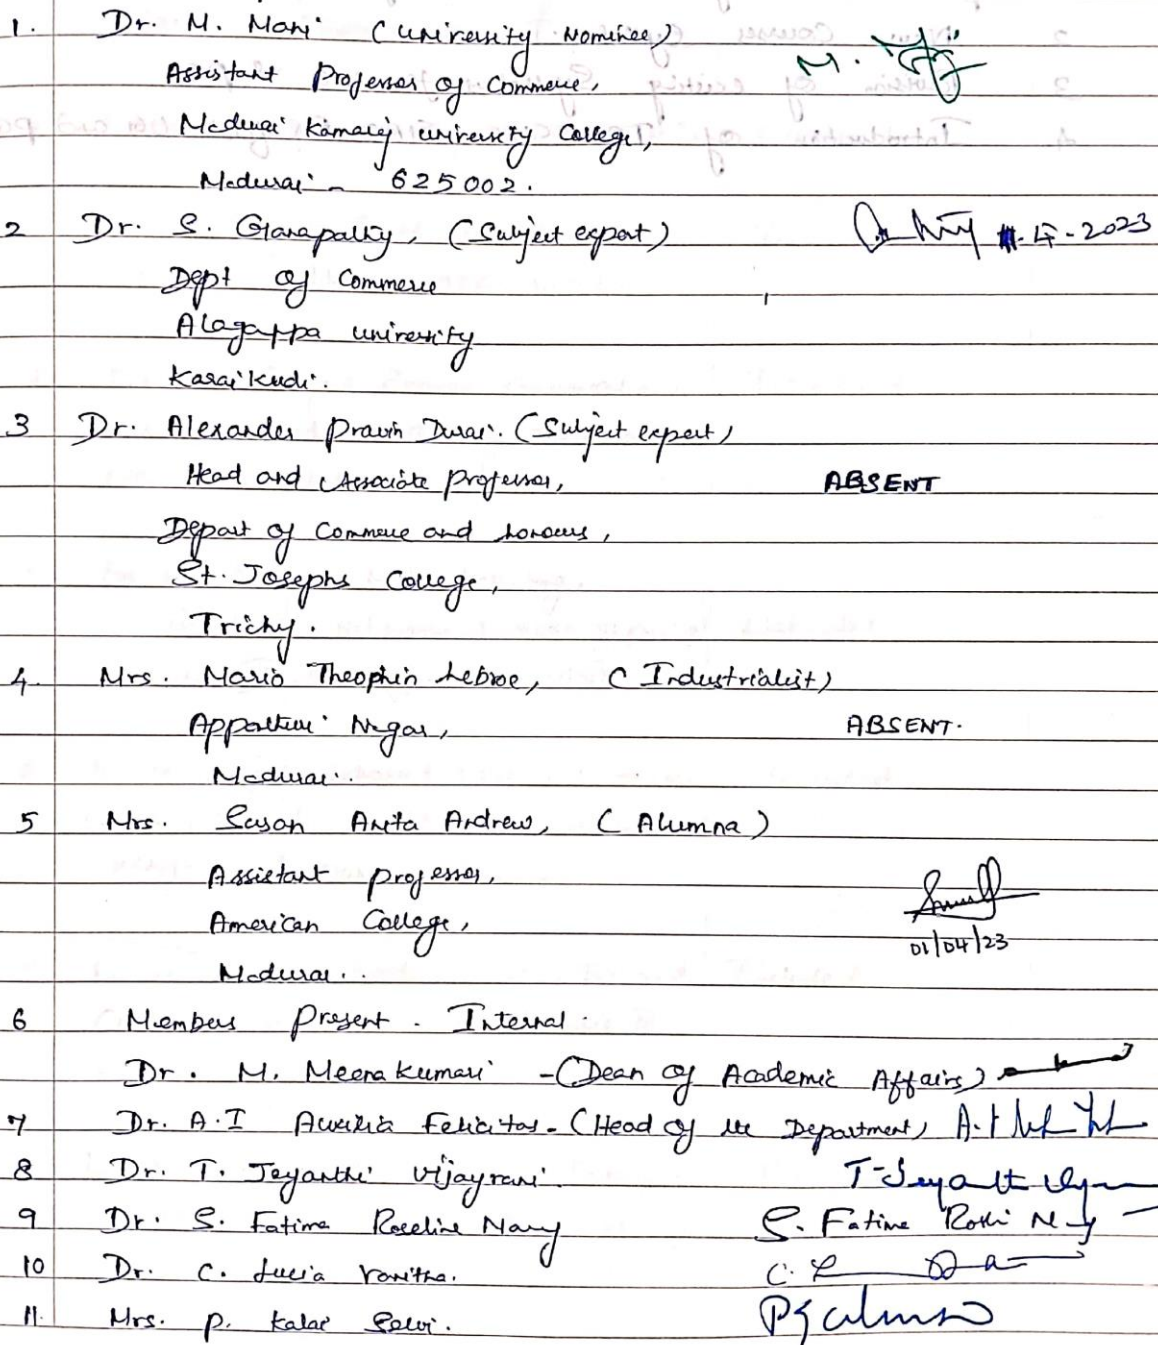 1. Dr. M. Mani (University Nominee)
Assistant Professor of Commerce, M.
Madurai Kamaraj University College,
Madurai - 625002.
2 Dr. S. Ganapathy, (Subject expert) 4-2023
Dept of Commerce
Alagappa University
Karaikudi.
3 Dr. Alexander Pravin Durai. (Subject expert)
Head and Associate Professor, ABSENT
Depart of Commerce and
St. Josephs College,
Trichy.
4. Mrs. Maria Theophin (Industrialist)
Nagar, ABSENT.
Madurai.
5 Mrs. Susan Anita Andrew, (Alumna)
Assistant professor,
American College,
Madurai. 01/04/23
6 Members Present - Internal.
Dr. M. Meena Kumari - (Dean of Academic Affairs)
7 Dr. A.I Auxilia Felicitas - (Head of the Department) A.I
8 Dr. T. Jeyanthi Vijayrani. T. Jeyanthi
9 Dr. S. Fatima Roseline Mary S. Fatima
10 Dr. C. Lucia Vanitha. C.
11. Mrs. P. Kalai Selvi.